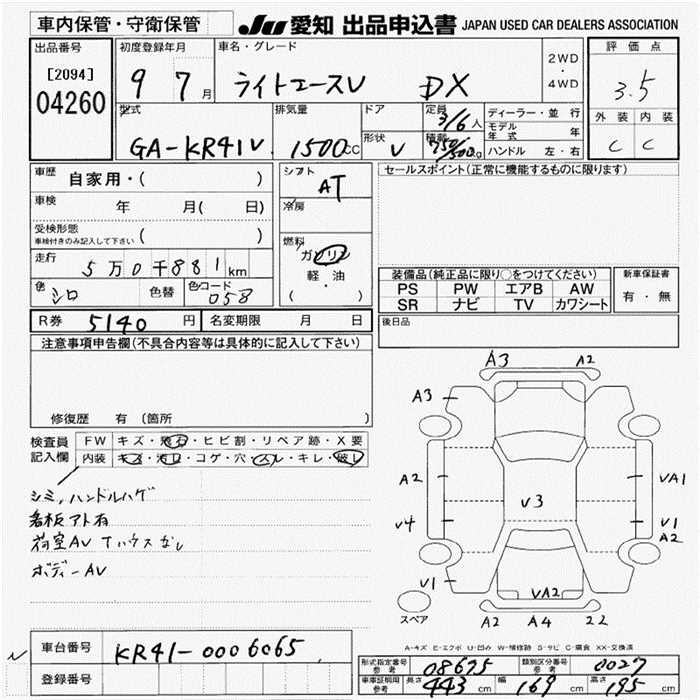 車内保管・守衛保管
JU 愛知 出品申込書 JAPAN USED CAR DEALERS ASSOCIATION
出品番号
[2094]
04260
初度登録年月
9 7月
車名・グレード
ライトエースV DX
2WD
・
4WD
評価点
3.5
外装 内装
C C
型式
GA-KR41V
排気量
1500cc
ドア
形状
V
定員
3/6人
積載
750/500
ディーラー・並行
モデル年式 年
ハンドル 左・右
車歴
自家用・( )
車検
年 月( 日)
受検形態
車検付きのみ記入して下さい ( )
走行
5万0千881km
色
シロ
色替
色コード
058
シフト
AT
冷房
燃料
ガソリン
・
軽油
( )
セールスポイント(正常に機能するものに限ります)
装備品(純正品に限り○をつけてください)
PS PW エアB AW
SR ナビ TV カワシート
新車保証書
有・無
R券 5140円 名変期限 月 日
後日品
注意事項申告欄(不具合内容等は具体的に記入して下さい)
修復歴 有(箇所 )
検査員
記入欄
FW キズ・飛石・ヒビ割・リペア跡・X要
内装 キズ・汚れ・コゲ・穴・スレ・キレ・破レ
シミ,ハンドルハゲ
看板アト有
荷室AV Tハウスなし
ボディーAV
A3 A2
A3
A2
V4
V1
V3
VA1
V1
A2
VA2
スペア
A2 A4 22
A-キズ E-エクボ U-凹み W-補修跡 S-サビ C-腐食 XX-交換済
車台番号
KR41-0006065
登録番号
形式指定番号
参考
08675
類別区分番号
参考
0027
車車証明用
参考
長さ 443cm 幅 169cm 高さ 195cm